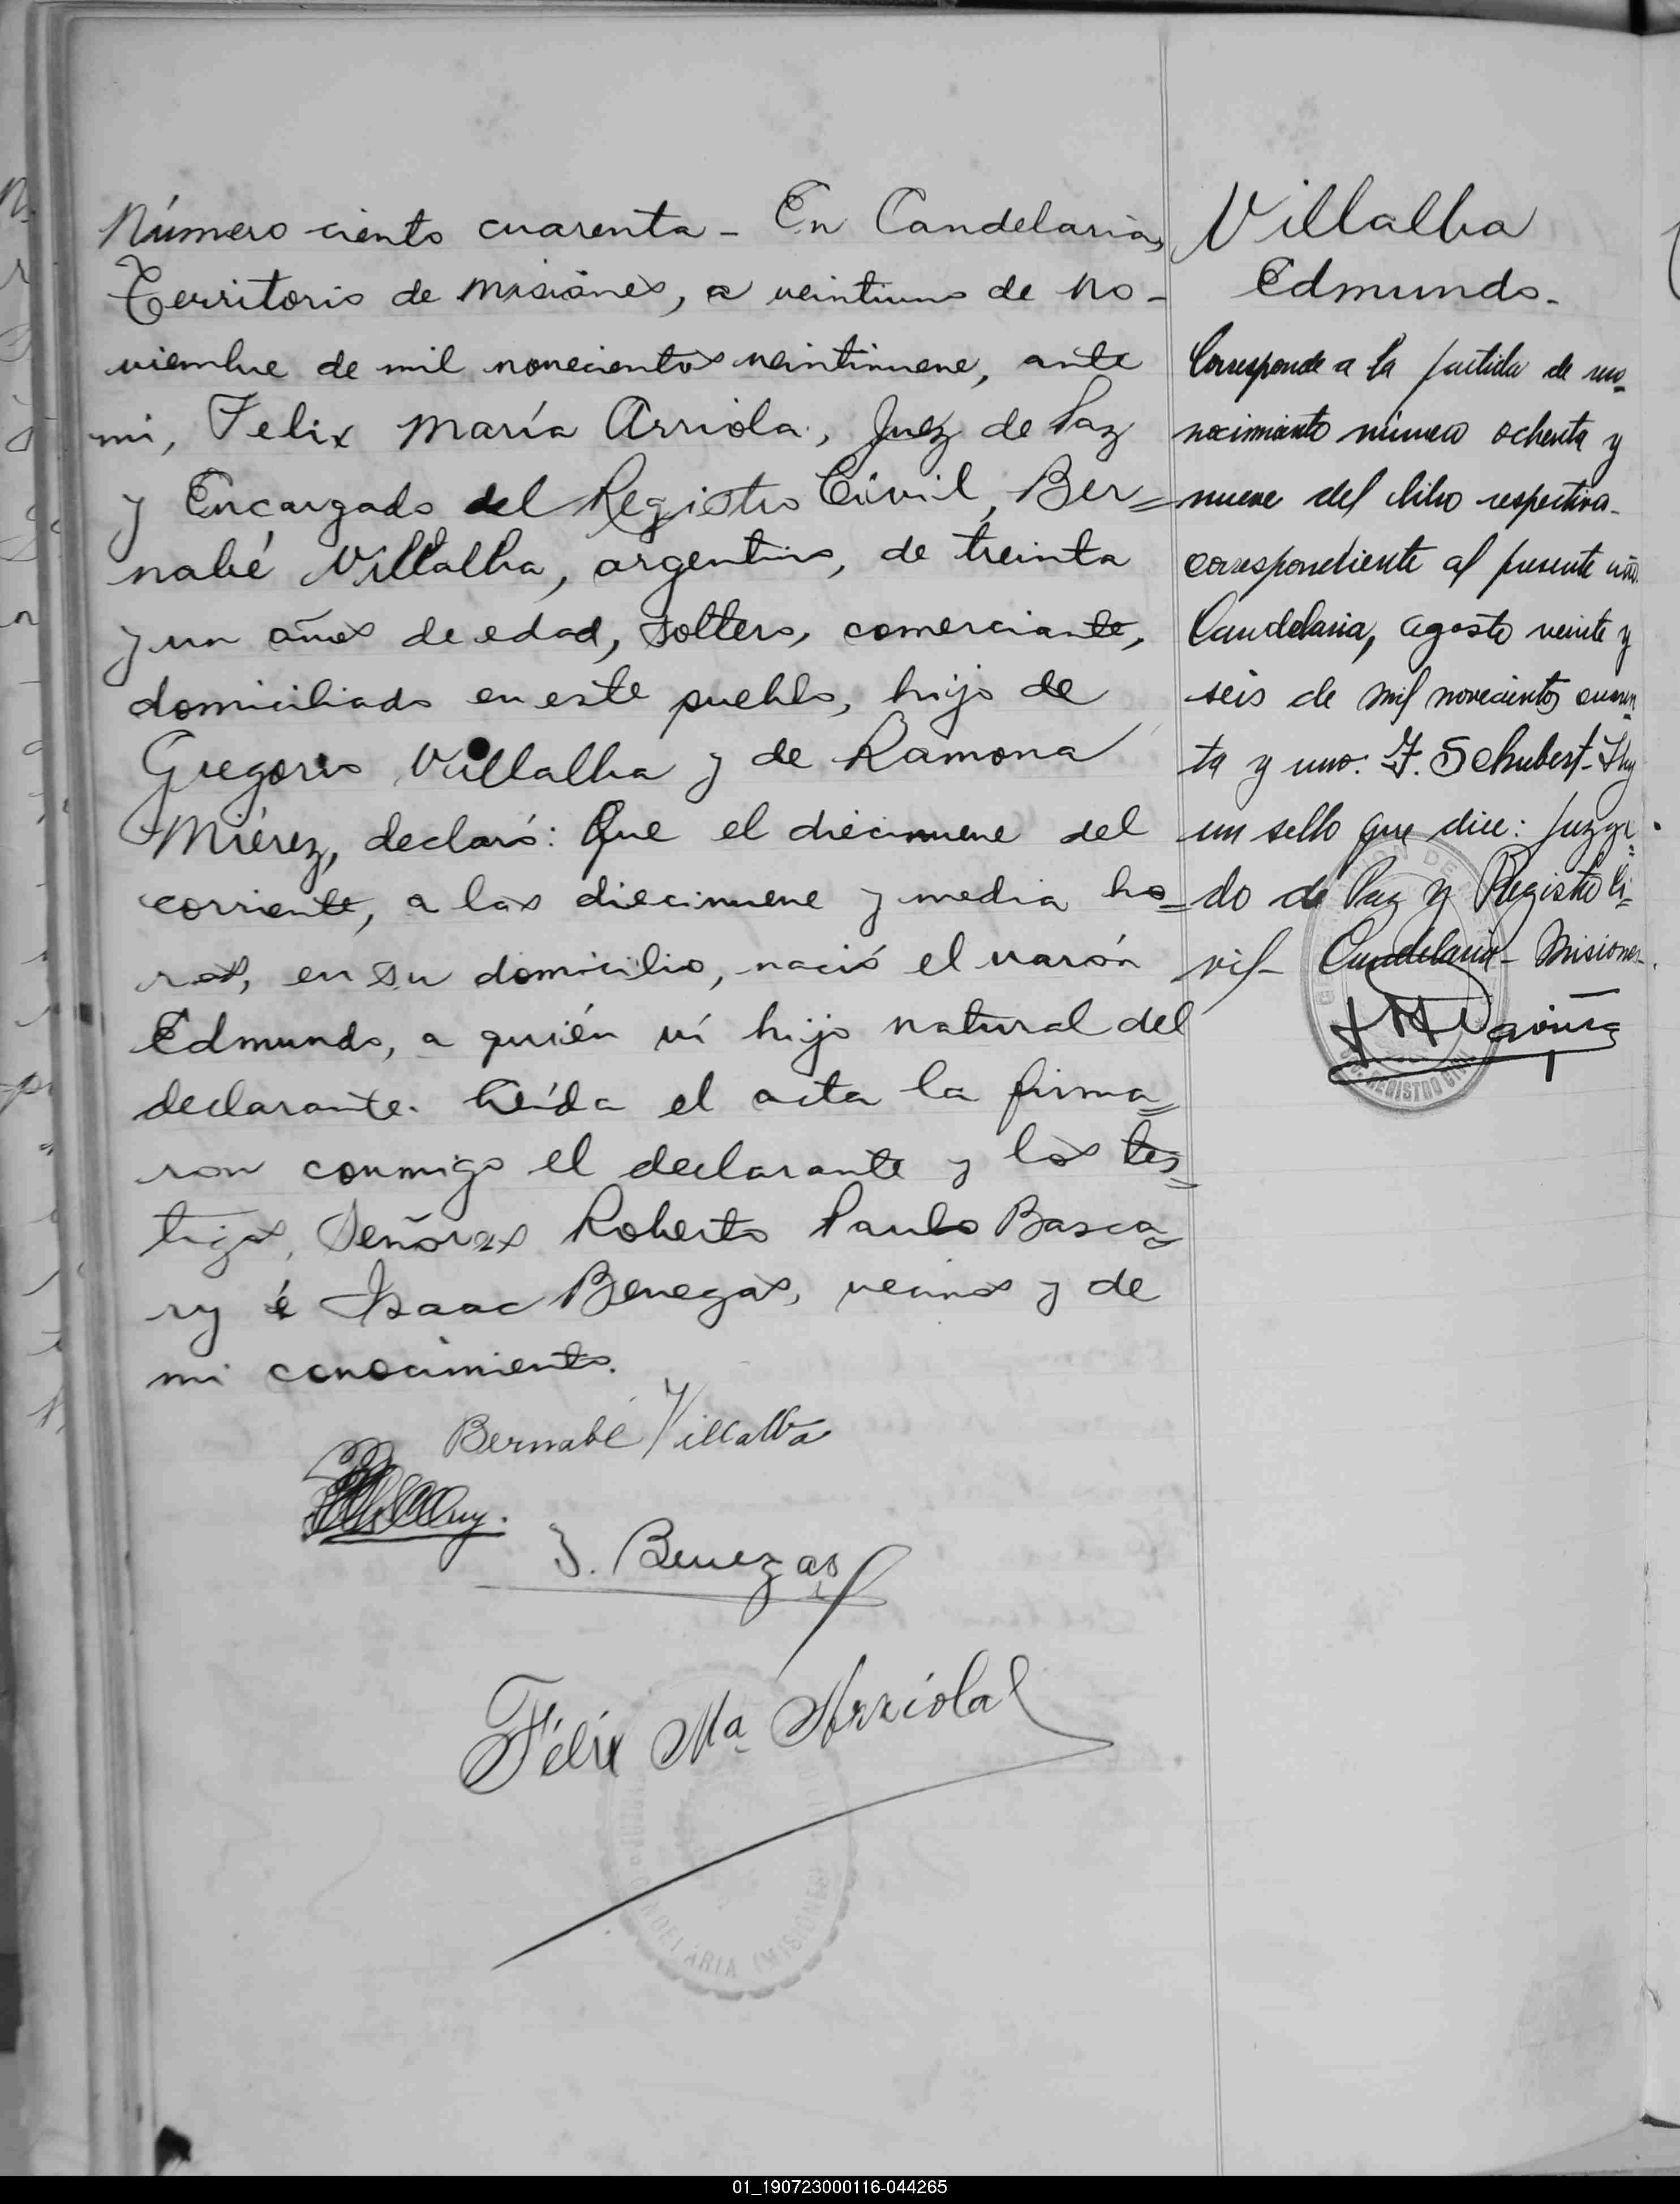 Número ciento cuarenta - En Candelaria,
Territorio de Misiones, a veintiuno de No-
viembre de mil novecientos veintinueve, ante
mi, Felix María Arriola, Juez de Paz
y Encargado del Registro Civil, Ber=
nabé Villalba, argentino, de treinta
y un años de edad, soltero, comerciante,
domiciliado en este pueblo, hijo de
Gregorio Villalba y de Ramona
Miérez, declaró: Que el diecinueve del
corriente, a las diecinueve y media ho=
ras, en su domicilio, nació el varón
Edmundo, a quién ví hijo natural del
declarante. Leída el acta la firma=
ron conmigo el declarante y los tes=
tigos, Señores Roberto Paulo Basca=
ry é Isaac Benegas, vecinos y de
mi conocimiento.
Bernabé Villalba
I. Benegas
Félix Ma Arriola
CANDELARIA (MISIONES)
Villalba
Edmundo.
Corresponde a la partida de reco=
nocimiento número ochenta y
nueve del libro respectivo
correspondiente al presente año.
Candelaria, agosto veinte y
seis de mil novecientos cuaren=
ta y uno. F. Schubert - Hay
un sello que dice: Juzga=
do de Paz y Registro Ci=
vil - Candelaria - Misiones.
REGISTRO CIVIL
01_190723000116-044265